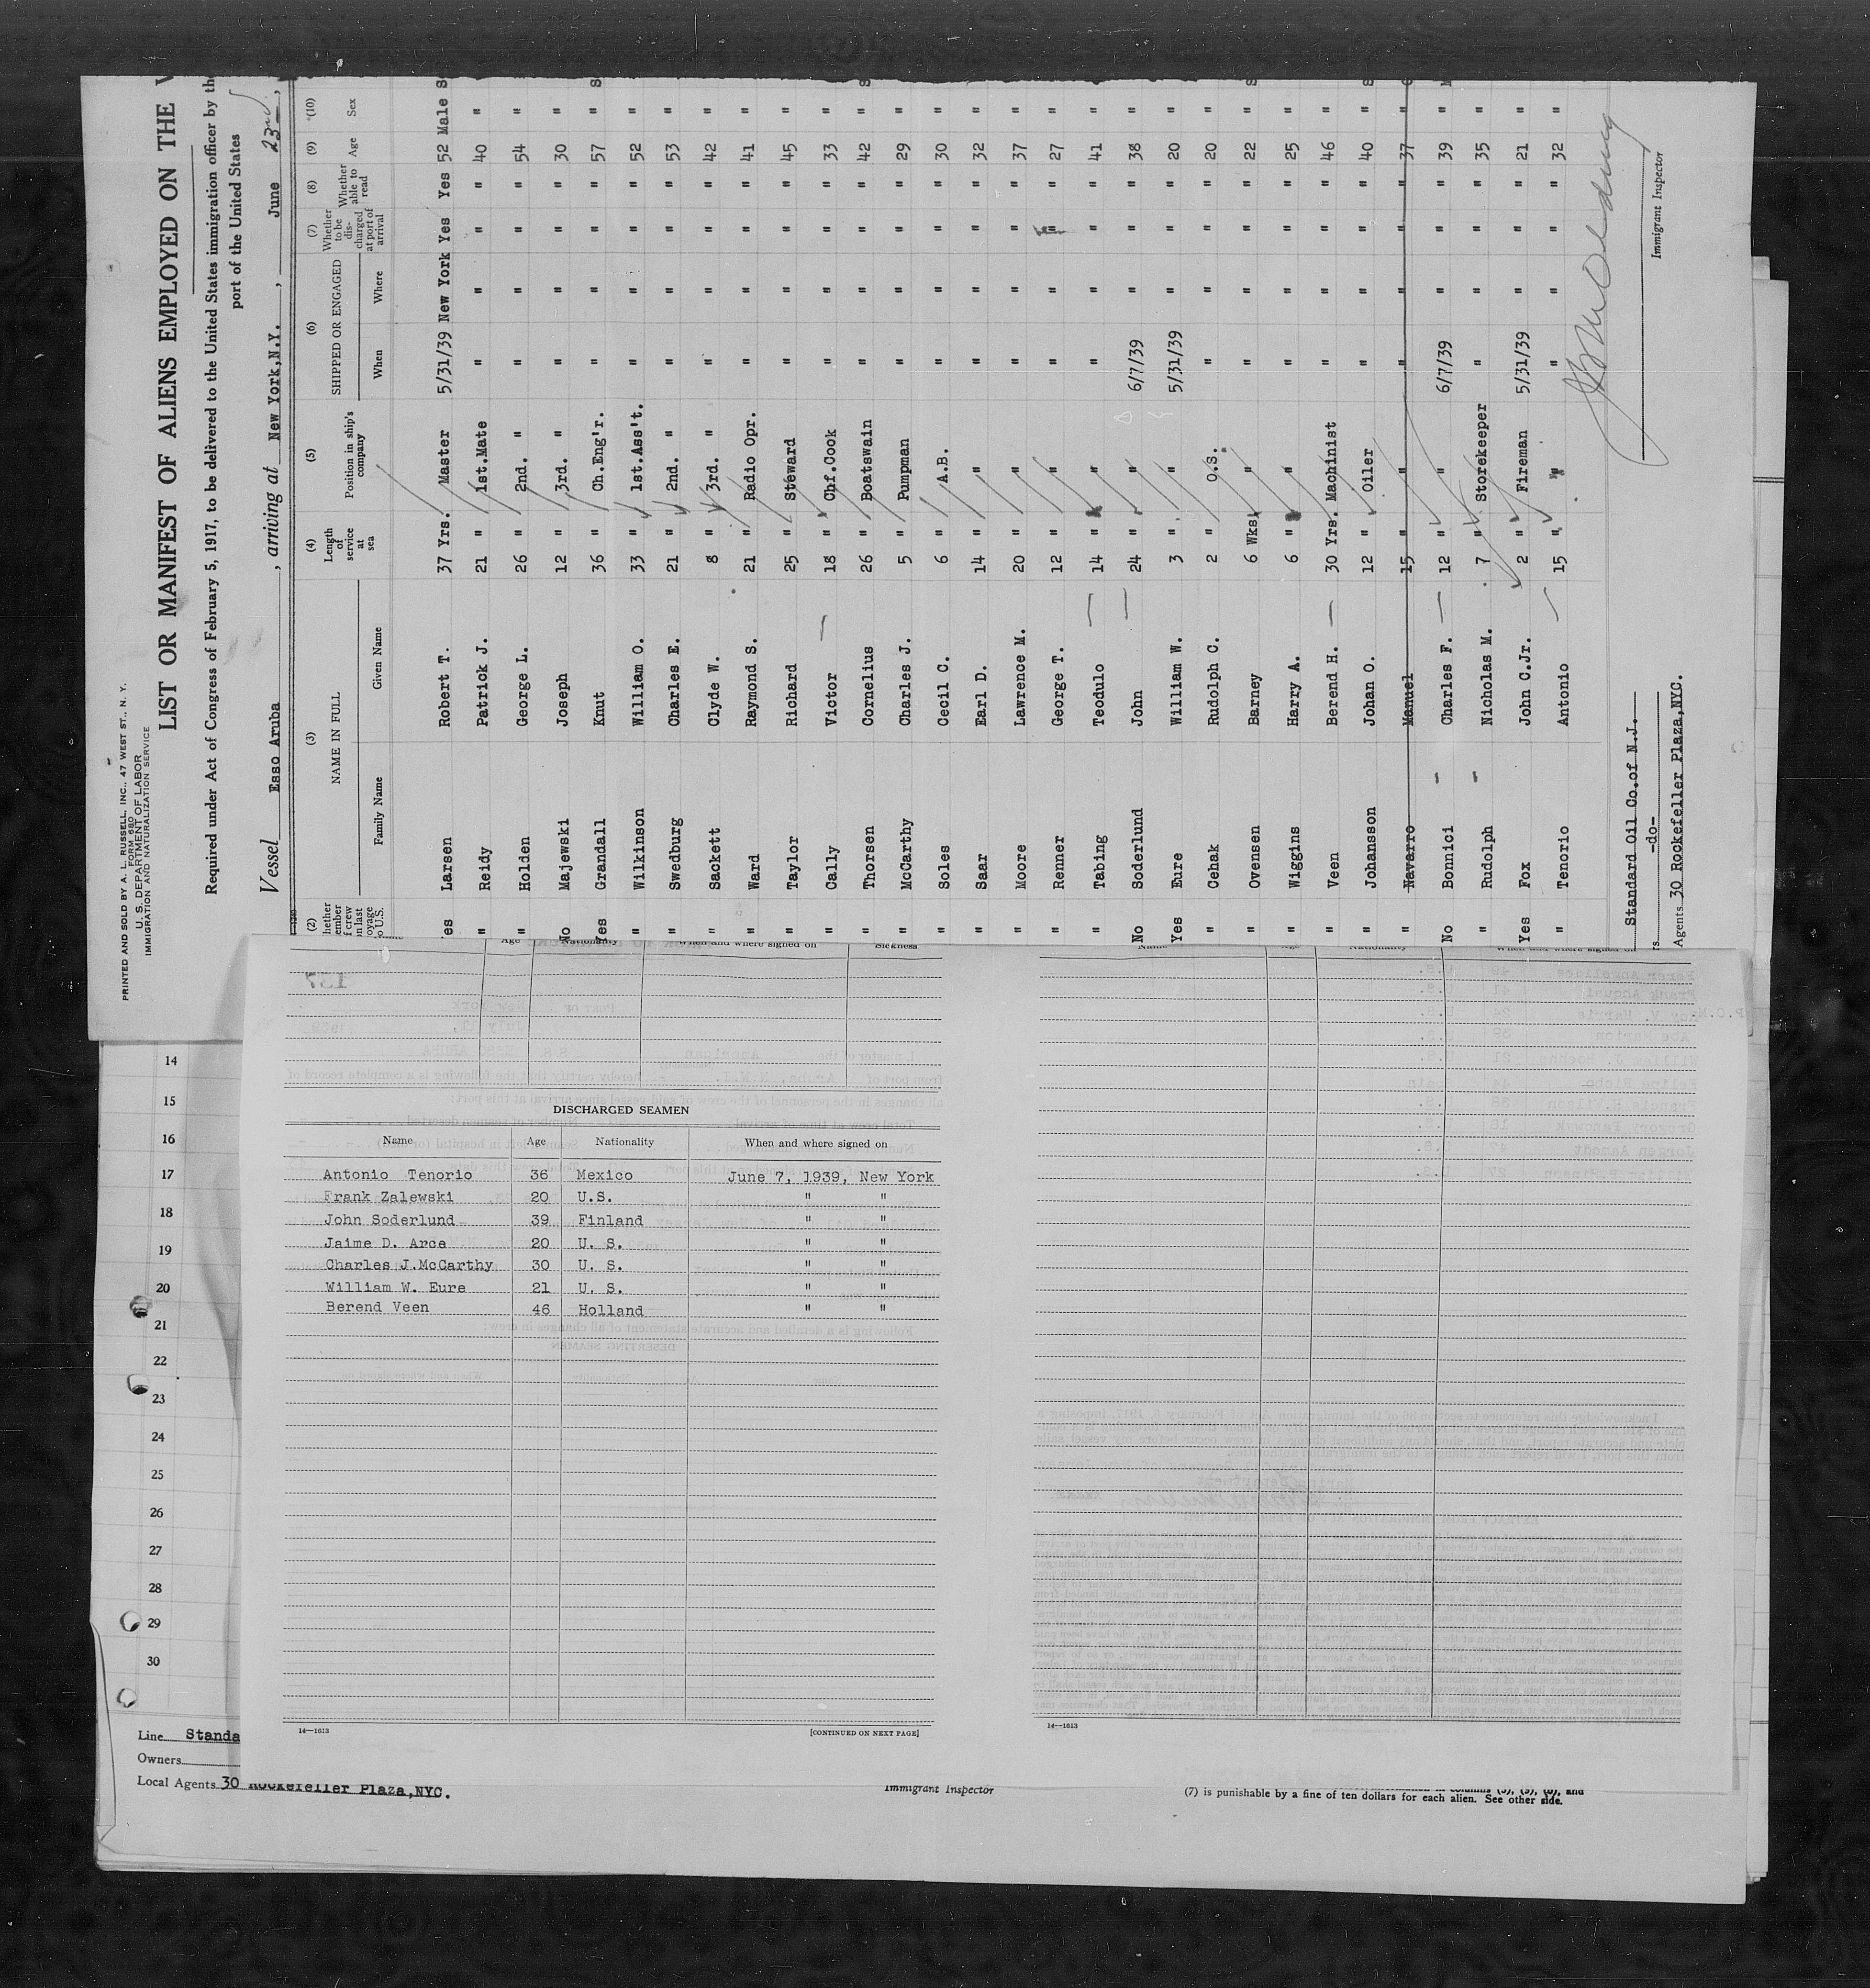 PRINTED AND SOLD BY A. L. RUSSELL, INC., 47 WEST ST., N. Y.
FORM 680
U. S. DEPARTMENT OF LABOR
IMMIGRATION AND NATURALIZATION SERVICE
LIST OR MANIFEST OF ALIENS EMPLOYED ON THE V
Required under Act of Congress of February 5, 1917, to be delivered to the United States immigration officer by the
port of the United States
Vessel Esso Aruba, arriving at New York,N.Y., June 23rd,
(2) (3) (4) (5) (6) (7) (8) (9) (10)
hether ember f crew n last oyage o U.S. NAME IN FULL Family Name Given Name Length of service at sea Position in ship's company SHIPPED OR ENGAGED When Where Whether to be discharged at port of arrival Whether able to read Age Sex
es Larsen Robert T. 37 Yrs. Master 5/31/39 New York Yes Yes 52 Male S
" Reidy Patrick J. 21 " 1st.Mate " " " " 40 "
" Holden George L. 26 " 2nd. " " " " " 54 "
No Majewski Joseph 12 " 3rd. " " " " " 30 "
Yes Grandall Knut 36 " Ch.Eng'r. " " " " 57 " S
" Wilkinson William O. 33 " 1st.Ass't. " " " " 52 "
" Swedburg Charles E. 21 " 2nd. " " " " " 53 "
" Sackett Clyde W. 8 " 3rd. " " " " " 42 "
" Ward Raymond S. 21 " Radio Opr. " " " " 41 "
" Taylor Richard 25 " Steward " " " " 45 "
" Cally Victor 18 " Chf.Cook " " " " 33 "
" Thorsen Cornelius 26 " Boatswain " " " " 42 " S
" McCarthy Charles J. 5 " Pumpman " " " " 29 "
" Soles Cecil C. 6 " A.B. " " " " 30 "
" Saar Earl D. 14 " " " " " " 32 "
" Moore Lawrence M. 20 " " " " " " 37 "
" Renner George T. 12 " " " " " " 27 "
" Tabing Teodulo 14 " " " " " " 41 "
No Soderlund John 24 " " 6/7/39 " " " 38 "
Yes Eure William W. 3 " " 5/31/39 " " " 20 "
" Cehak Rudolph C. 2 " O.S. " " " " 20 "
" Ovensen Barney 6 Wks. " " " " " 22 " S
" Wiggins Harry A. 6 " " " " " " 25 "
" Veen Berend H. 30 Yrs. Machinist " " " " 46 "
" Johansson Johan O. 12 " Oiler " " " " 40 " S
" Navarro Manuel 15 " " " " " " 37 "
No Bonnici Charles F. 12 " " 6/7/39 " " " 39 "
" Rudolph Nicholas M. 7 " Storekeeper " " " " 35 "
Yes Fox John C.Jr. 2 " Fireman 5/31/39 " " " 21 "
" Tenorio Antonio 15 " " " " " " 32 "
Standard Oil Co.of N.J.
-do-
Agents 30 Rockefeller Plaza,NYC.
Immigrant Inspector
Age Nationality When and where signed on Sickness
14
15
16
17
18
19
20
21
22
23
24
25
26
27
28
29
30
DISCHARGED SEAMEN
Name Age Nationality When and where signed on
Antonio Tenorio 36 Mexico June 7, 1939, New York
Frank Zalewski 20 U.S. " "
John Soderlund 39 Finland " "
Jaime D. Arce 20 U. S. " "
Charles J.McCarthy 30 U. S. " "
William W. Eure 21 U. S. " "
Berend Veen 46 Holland " "
14—1613
[CONTINUED ON NEXT PAGE]
14—1613
Line Standa
Owners
Local Agents 30 Rockefeller Plaza,NYC.
Immigrant Inspector
columns (3), (5), (6), and
(7) is punishable by a fine of ten dollars for each alien. See other side.